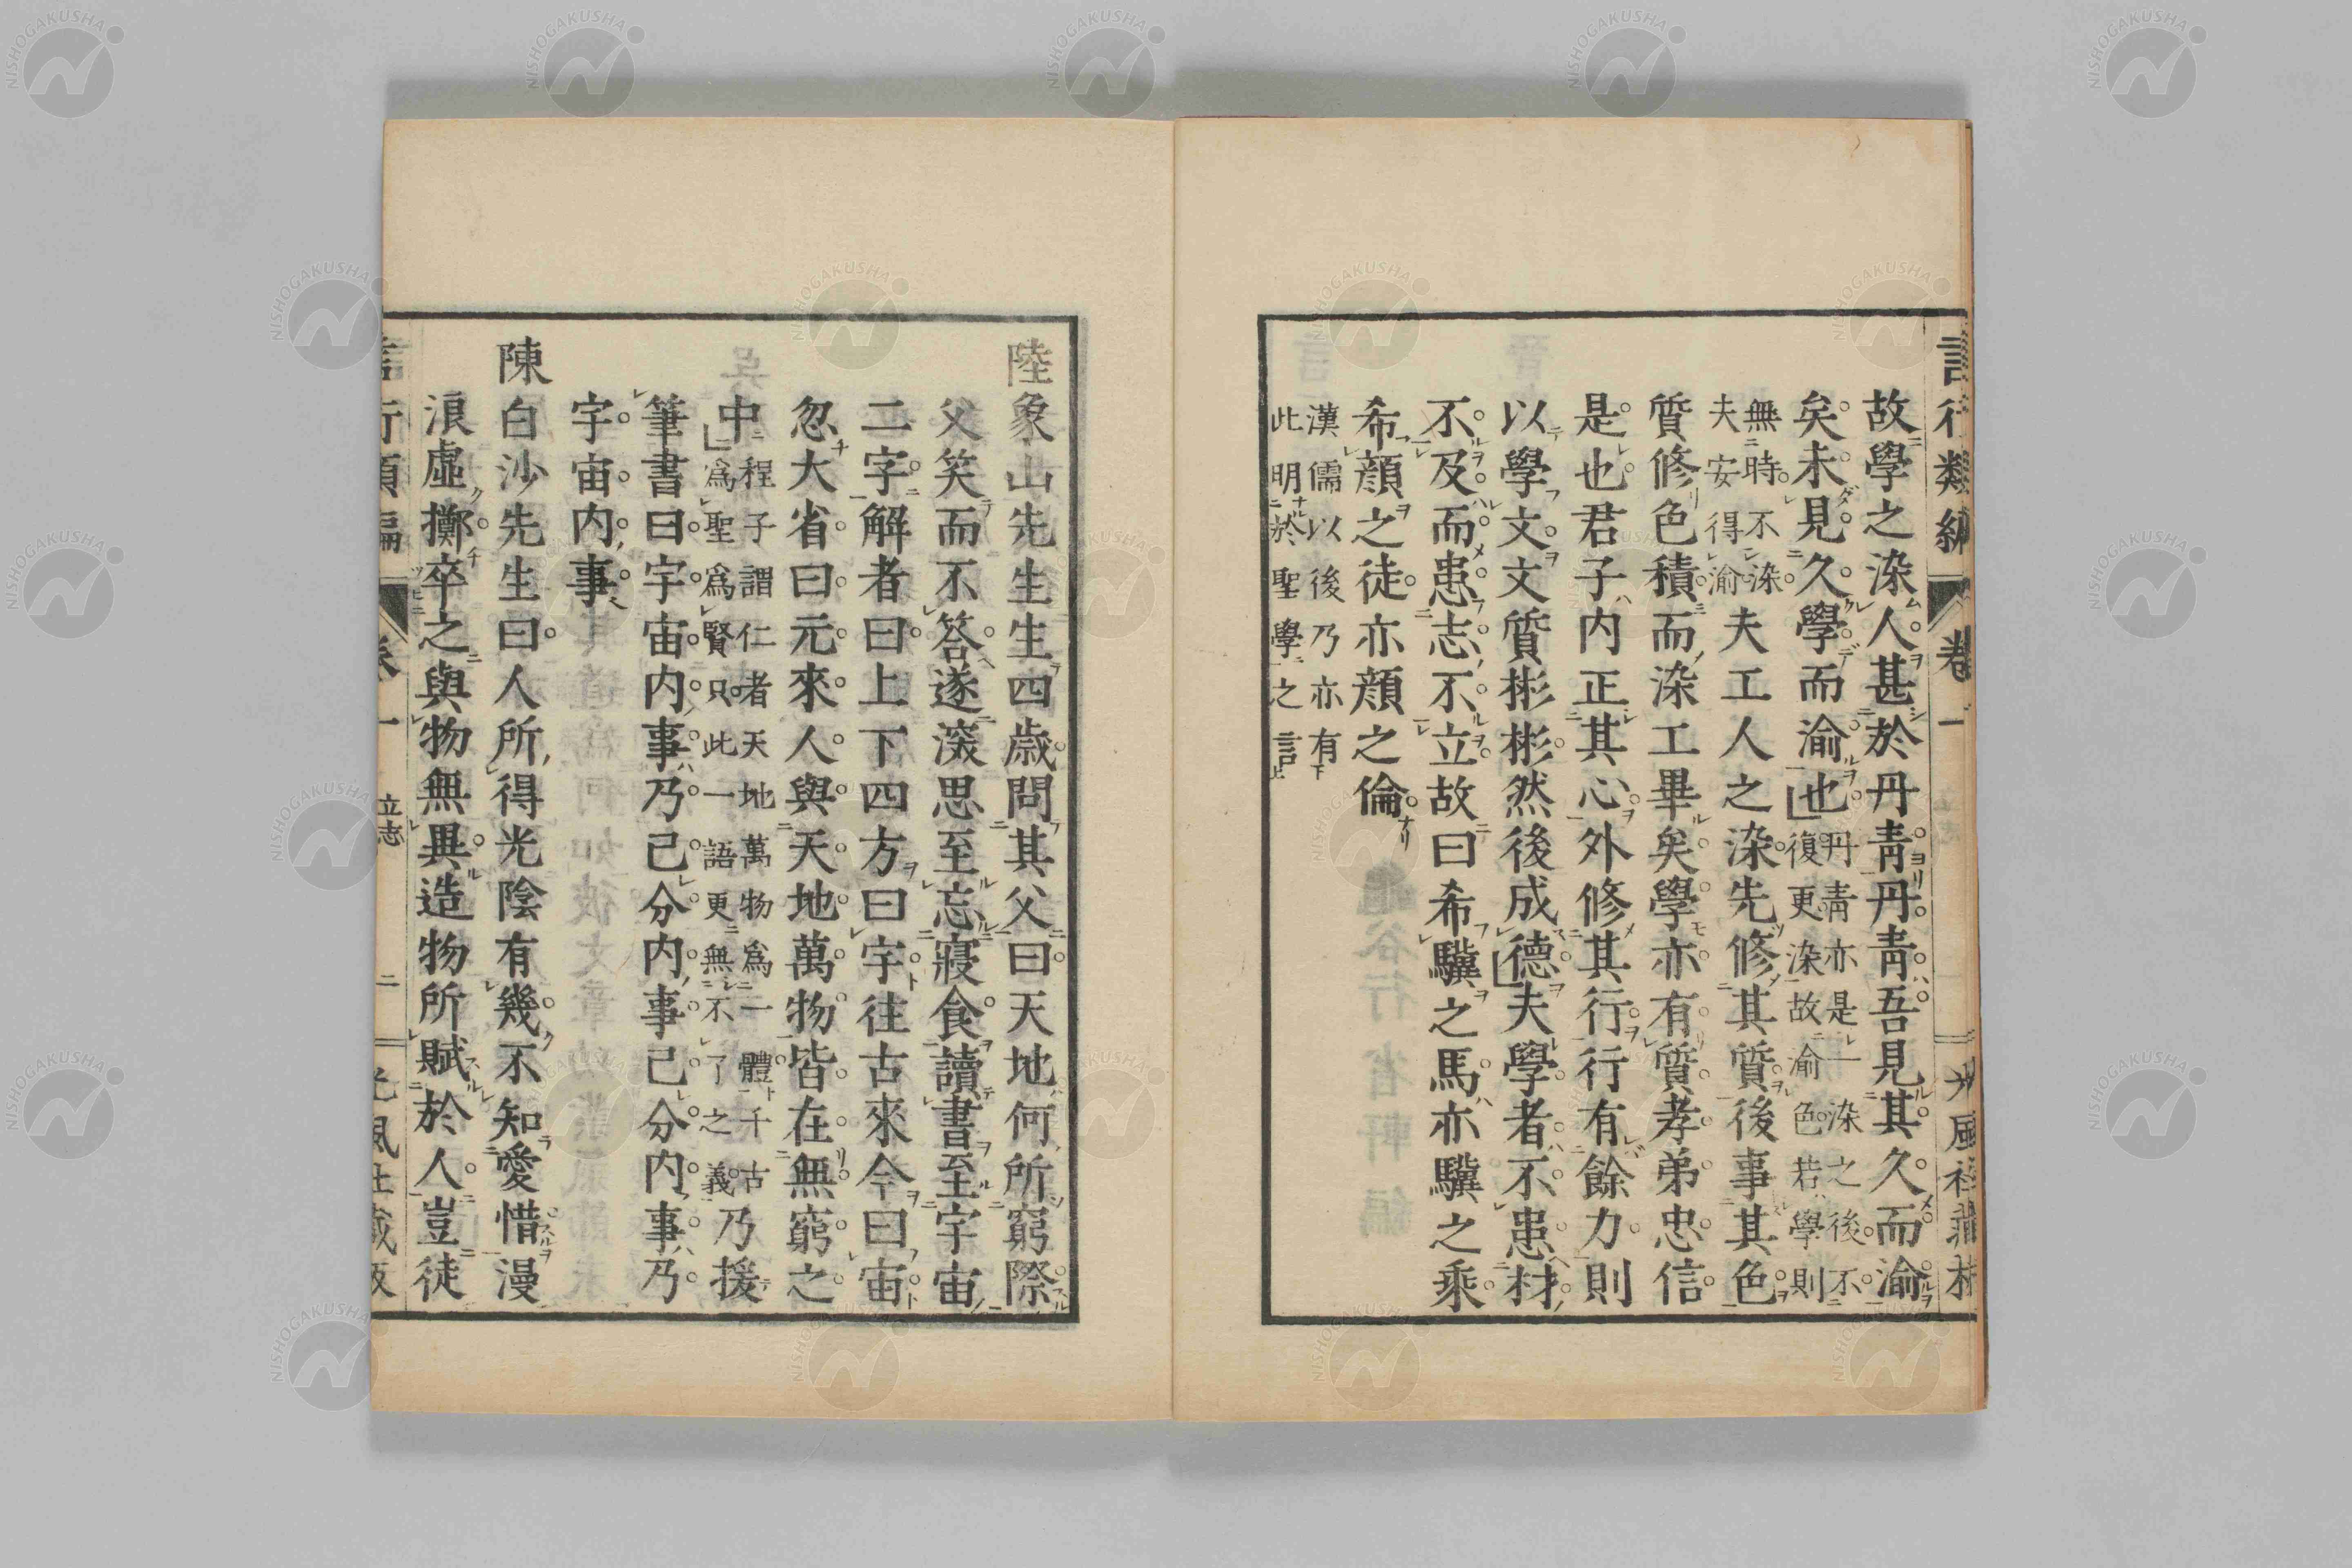 故學之染人甚於丹靑丹靑吾見其久而渝
矣未見久學而渝也丹靑亦是一染之後不
復更染故渝色若學則
無時不染
夫安得渝夫工人之染先修其質後事其色
質修色積而染工畢矣學亦有質孝弟忠信
是也君子內正其心外修其行行有餘力則
以學文文質彬彬然後成德夫學者不患材
不及而患志不立故曰希驥之馬亦驥之乘
希顔之徒亦顔之倫
漢儒以後乃亦有
此明於聖學之言
陸象山先生生四歲問其父曰天地何所窮際
父笑而不答遂深思至忘寢食讀書至宇宙
二字解者曰上下四方曰宇往古來今曰宙
忽大省曰元來人與天地萬物皆在無窮之
中程子謂仁者天地萬物爲一體千古
爲聖爲賢只此一語更無不了之義乃援
筆書曰宇宙內事乃己分內事己分內事乃
宇宙內事
陳白沙先生曰人所得光陰有幾不知愛惜漫
浪虛擲卒之與物無異造物所賦於人豈徒
卷一 立志 二